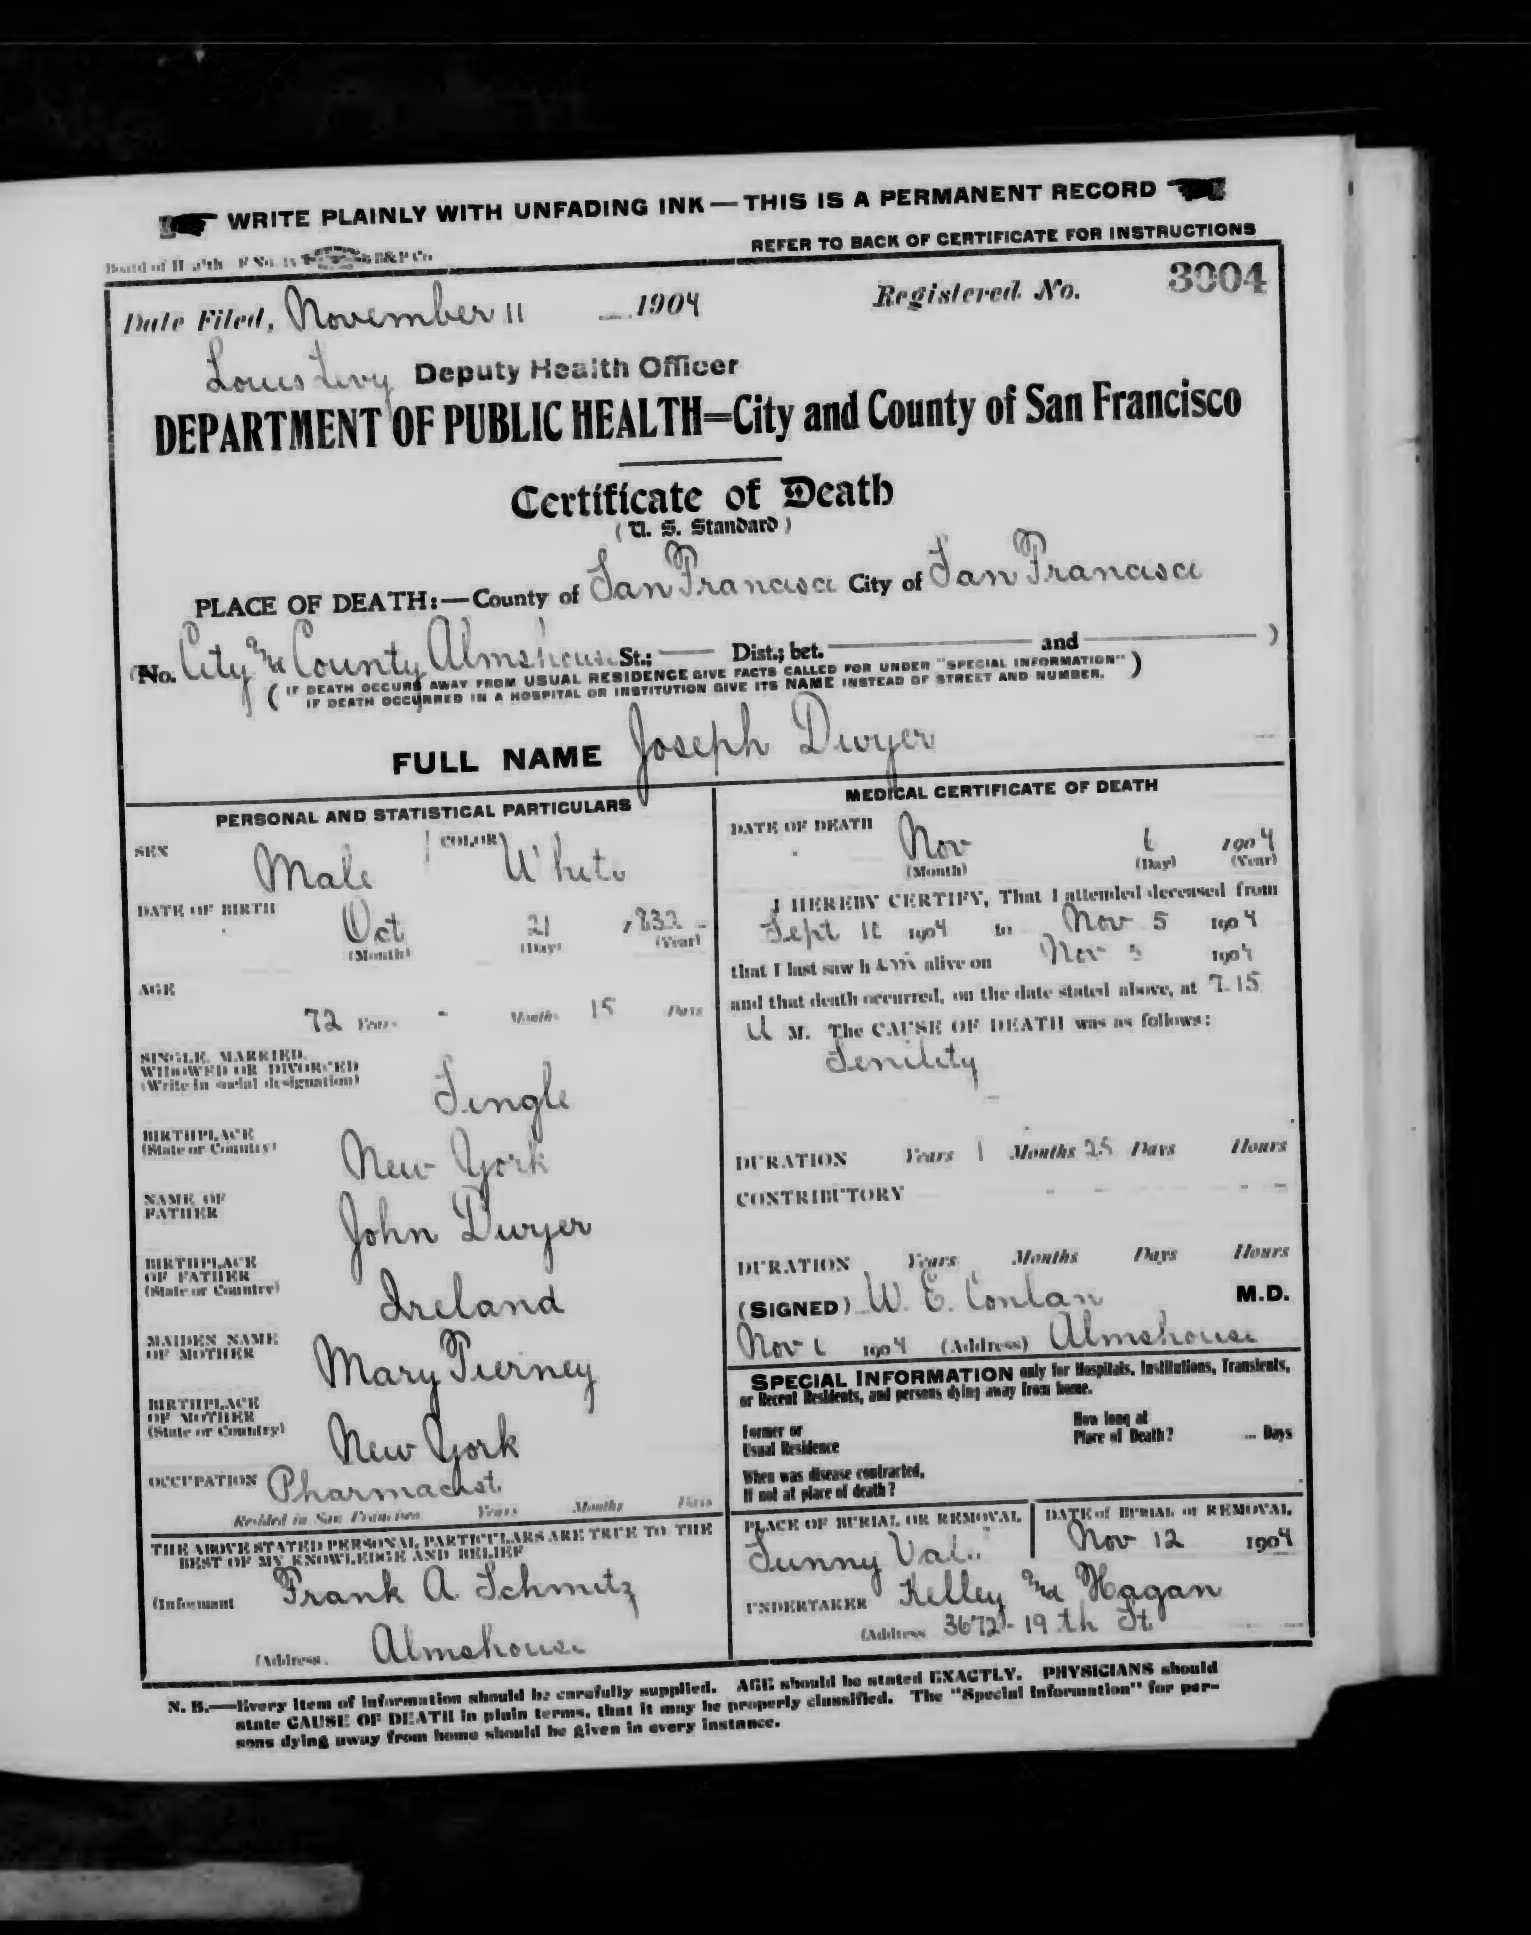 WRITE PLAINLY WITH UNFADING INK — THIS IS A PERMANENT RECORD
REFER TO BACK OF CERTIFICATE FOR INSTRUCTIONS
Board of Health F No. B&P Co
Date Filed, November 11 1904 Registered No. 3004
Louis Levy Deputy Health Officer
DEPARTMENT OF PUBLIC HEALTH=City and County of San Francisco
Certificate of Death
(U. S. Standard)
PLACE OF DEATH:—County of San Francisco City of San Francisco
(No. City and County Almshouse St.; — Dist.; bet. — and — )
( IF DEATH OCCURS AWAY FROM USUAL RESIDENCE GIVE FACTS CALLED FOR UNDER "SPECIAL INFORMATION" )
IF DEATH OCCURRED IN A HOSPITAL OR INSTITUTION GIVE ITS NAME INSTEAD OF STREET AND NUMBER.
FULL NAME Joseph Dwyer
PERSONAL AND STATISTICAL PARTICULARS
SEX Male COLOR White
DATE OF BIRTH Oct 21 1832
(Month) (Day) (Year)
AGE
72 Years - Months 15 Days
SINGLE, MARRIED,
WIDOWED OR DIVORCED
(Write in social designation)
Single
BIRTHPLACE
(State or Country)
New York
NAME OF
FATHER
John Dwyer
BIRTHPLACE
OF FATHER
(State or Country)
Ireland
MAIDEN NAME
OF MOTHER
Mary Tierney
BIRTHPLACE
OF MOTHER
(State or Country)
New York
OCCUPATION Pharmacist
Resided in San Francisco Years Months Days
THE ABOVE STATED PERSONAL PARTICULARS ARE TRUE TO THE
BEST OF MY KNOWLEDGE AND BELIEF
(Informant Frank A. Schmitz
(Address. Almshouse
MEDICAL CERTIFICATE OF DEATH
DATE OF DEATH
Nov 6 1904
(Month) (Day) (Year)
I HEREBY CERTIFY, That I attended deceased from
Sept 11 1904 to Nov 5 1904
that I last saw him alive on Nov 5 1904
and that death occurred, on the date stated above, at 7.15
a M. The CAUSE OF DEATH was as follows:
Senility
DURATION Years 1 Months 25 Days Hours
CONTRIBUTORY
DURATION Years Months Days Hours
(SIGNED) W. E. Conlan M.D.
Nov 6 1904 (Address) Almshouse
SPECIAL INFORMATION only for Hospitals, Institutions, Transients,
or Recent Residents, and persons dying away from home.
Former or
Usual Residence
How long at
Place of Death? ... Days
When was disease contracted,
If not at place of death?
PLACE OF BURIAL OR REMOVAL
Sunny Vale
DATE of BURIAL or REMOVAL
Nov 12 1904
UNDERTAKER Kelley and Hagan
(Address 3672 - 19th St
N. B.—Every item of information should be carefully supplied. AGE should be stated EXACTLY. PHYSICIANS should
state CAUSE OF DEATH in plain terms, that it may be properly classified. The "Special Information" for per-
sons dying away from home should be given in every instance.